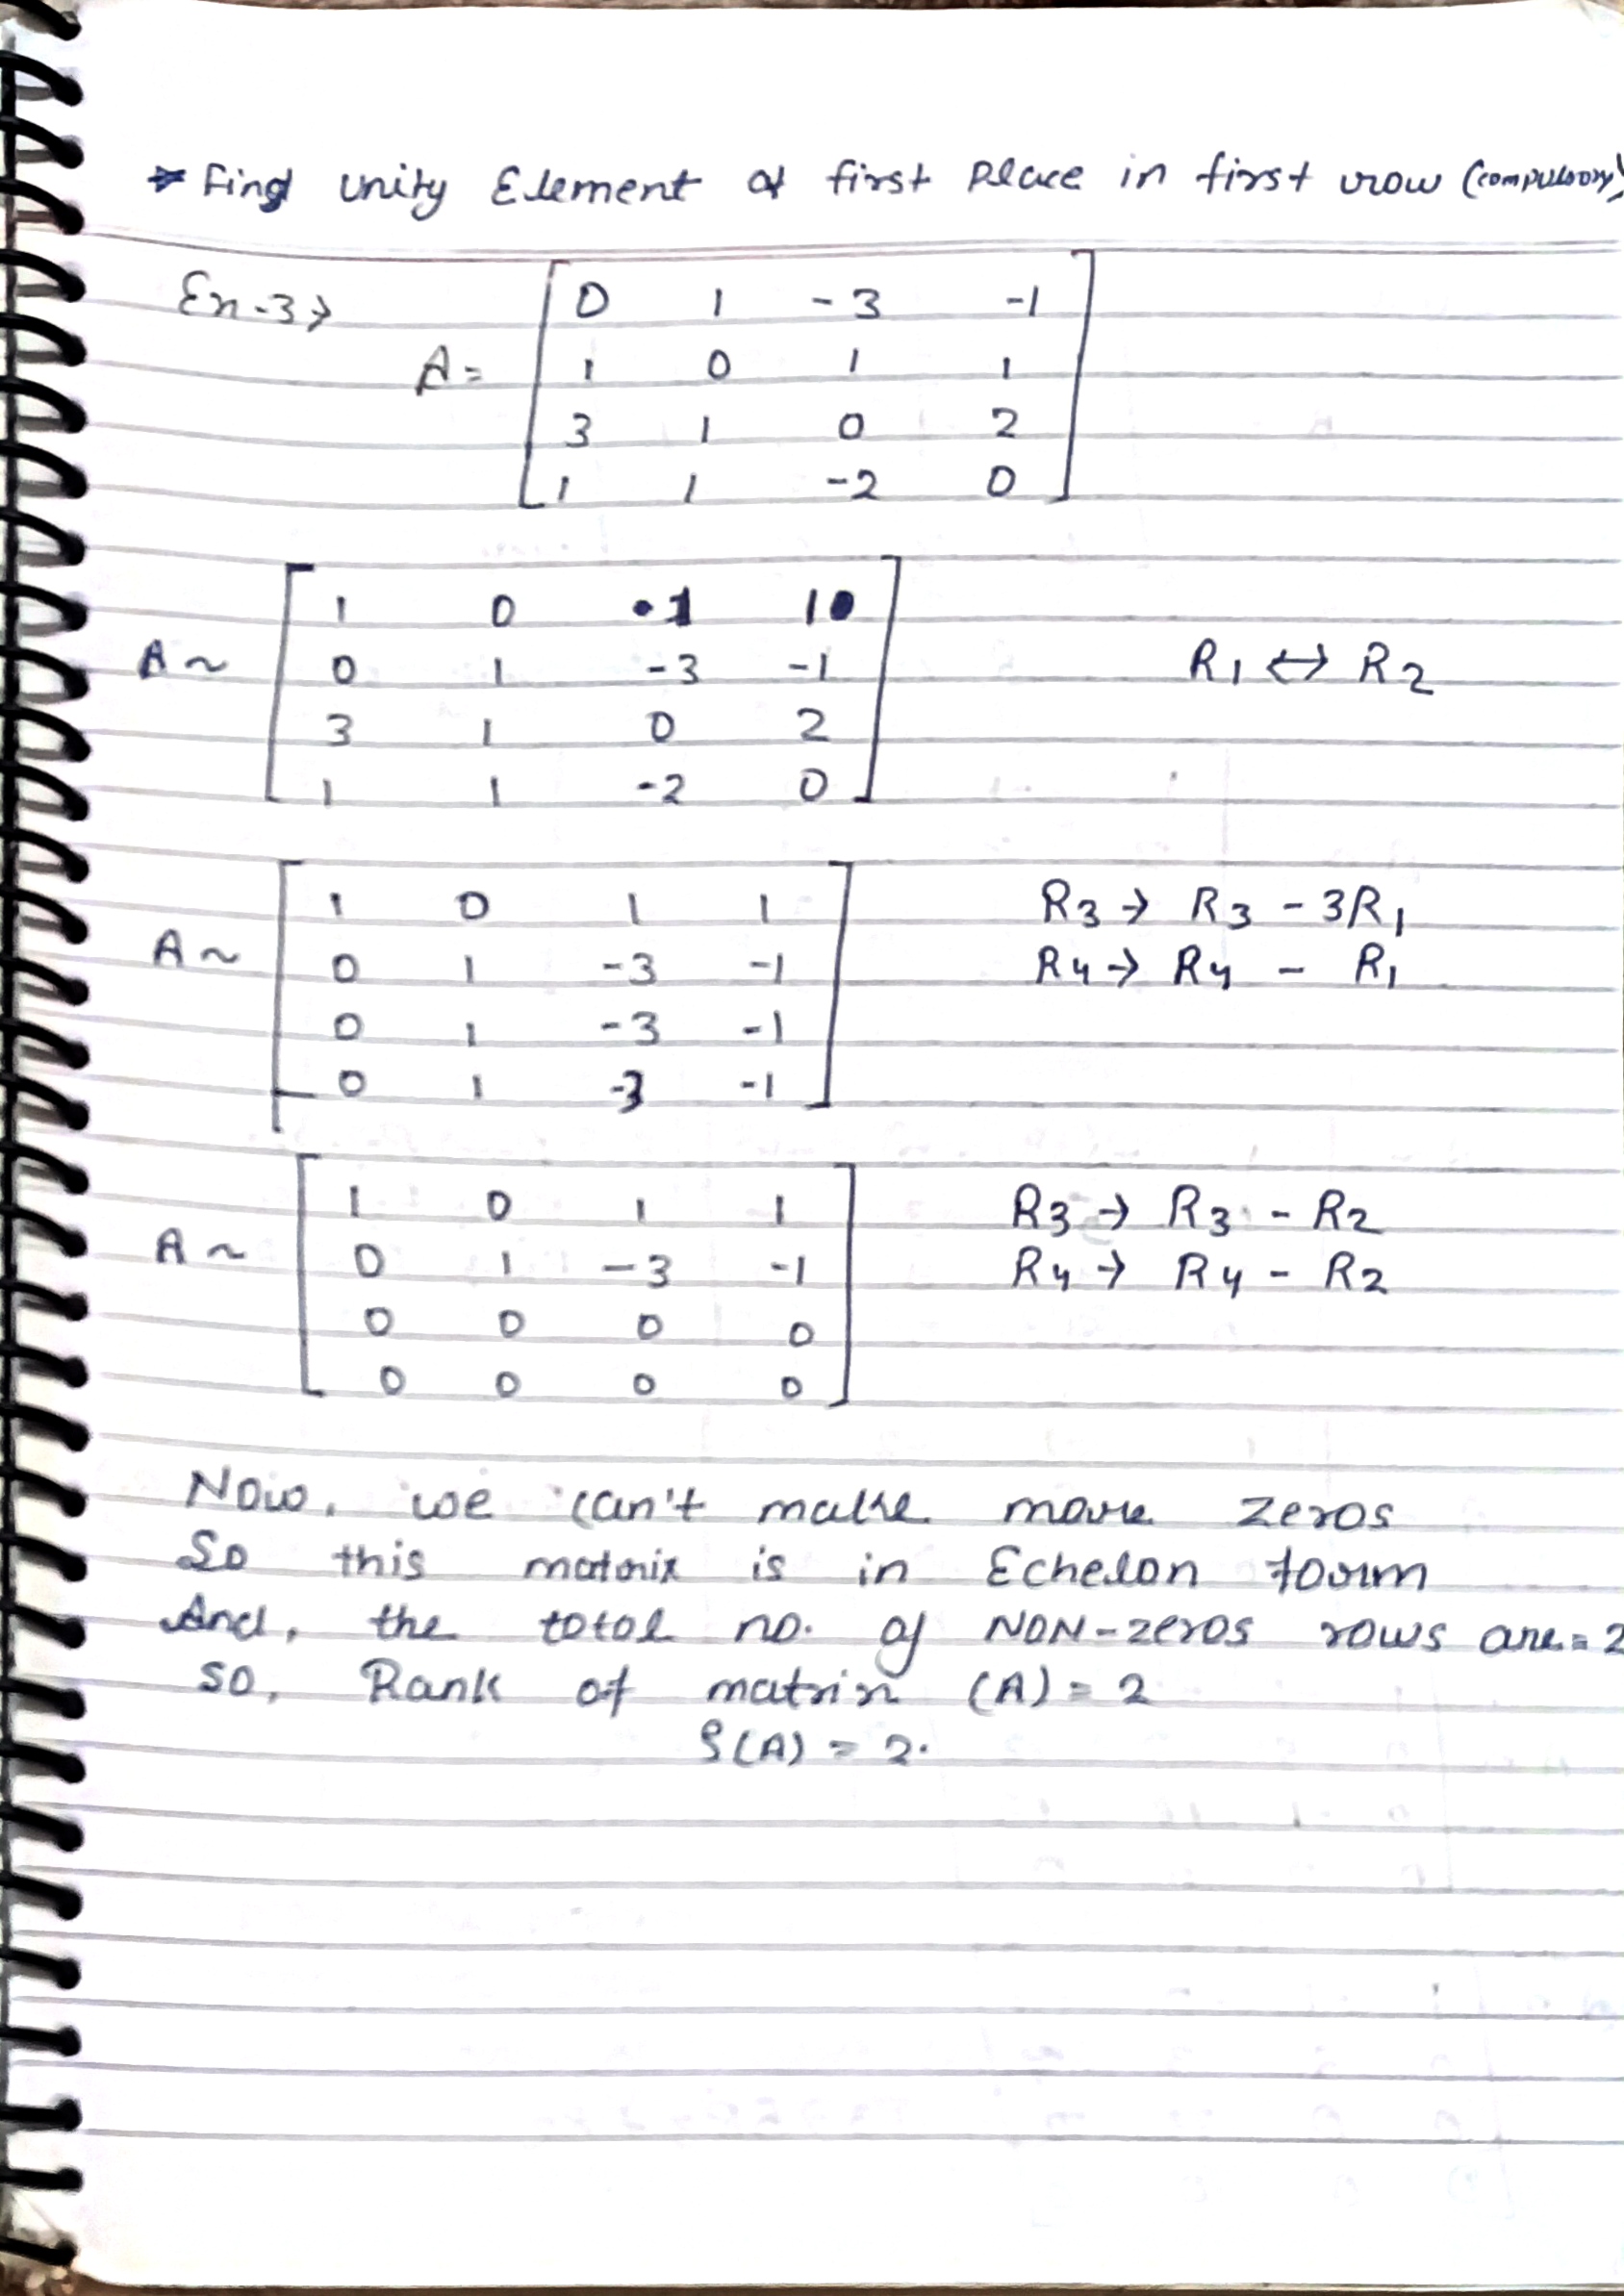 * Find unity Element at first Place in first row (compulsory)
Ex-3→
A= [ 0 1 -3 -1
1 0 1 1
3 1 0 2
1 1 -2 0 ]
A ~ [ 1 0 1 1
0 1 -3 -1
3 1 0 2
1 1 -2 0 ] R1 ↔ R2
A ~ [ 1 0 1 1 R3 → R3 - 3R1
0 1 -3 -1 R4 → R4 - R1
0 1 -3 -1
0 1 -3 -1 ]
A ~ [ 1 0 1 1 R3 → R3 - R2
0 1 -3 -1 R4 → R4 - R2
0 0 0 0
0 0 0 0 ]
Now, we can't make more zeros
So this matrix is in Echelon form
And, the total no. of NON-zeros rows are = 2
so, Rank of matrix (A) = 2
ρ(A) = 2.